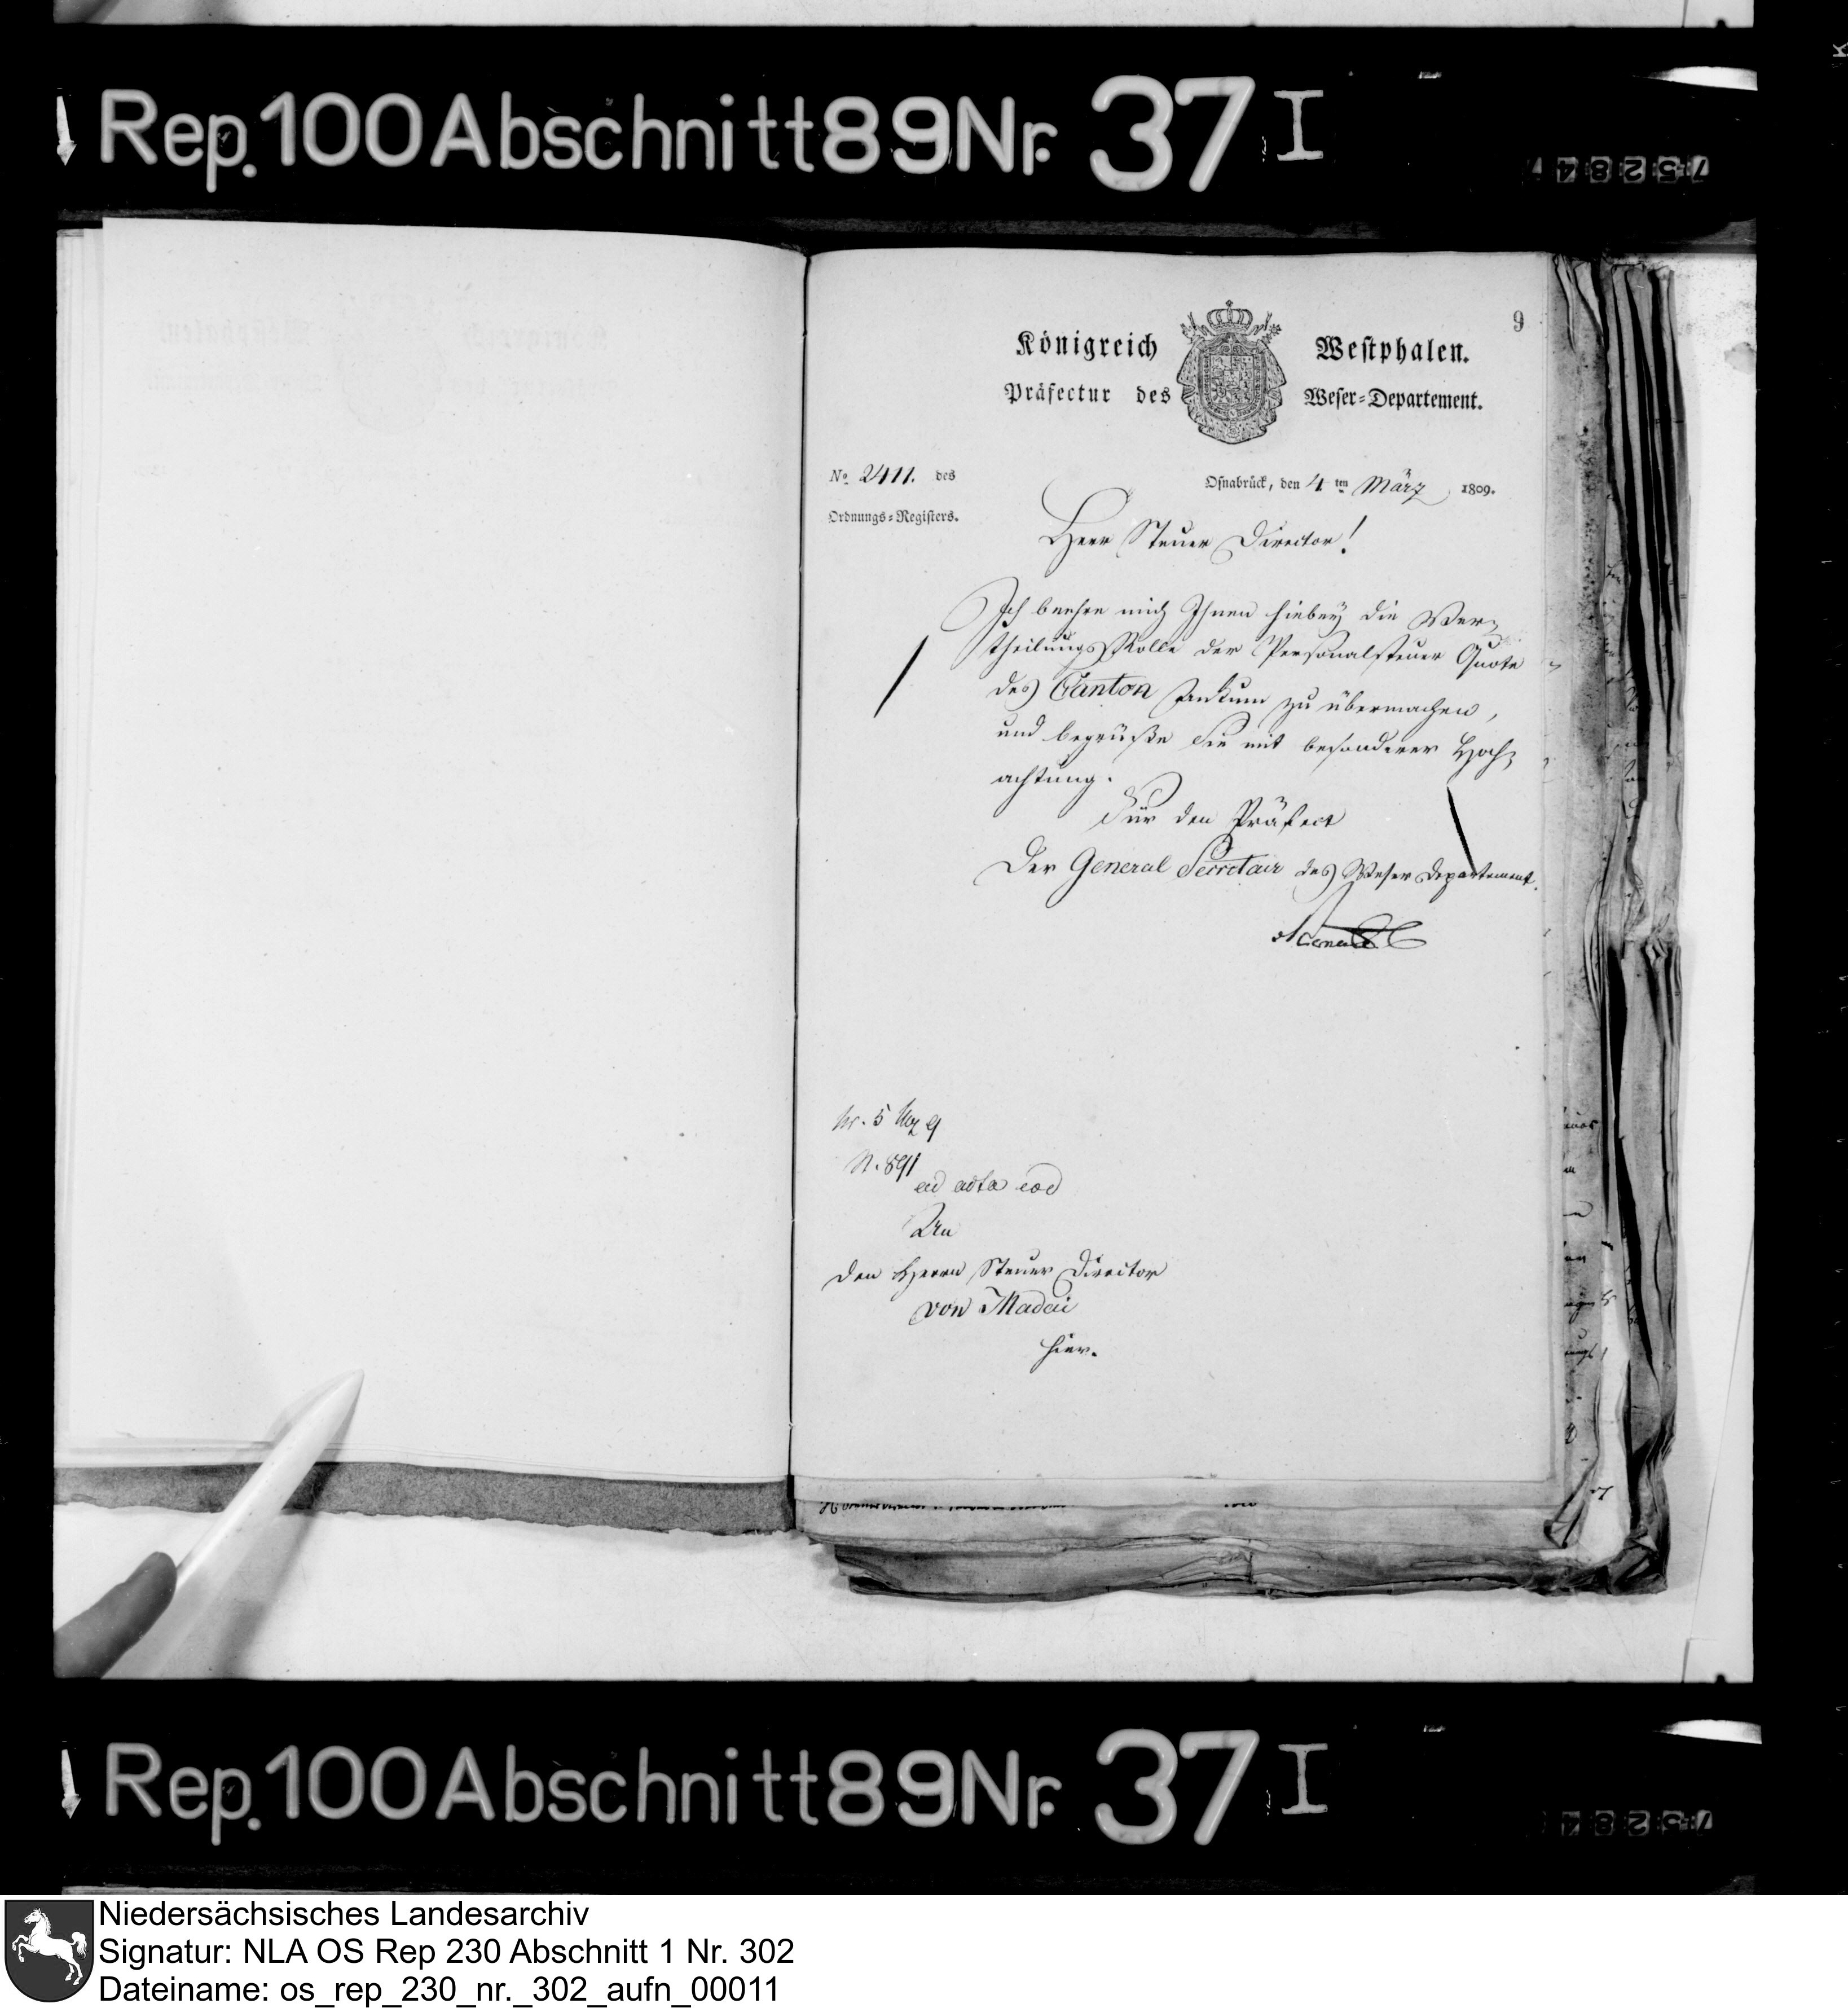 Rep. 100 Abschnitt 89 Nr. 37 I
75284
9
Königreich Westphalen.
Präfectur des Weser-Departement.
No 2411. des
Ordnungs-Registers.
Osnabrück, den 4 ten März 1809.
Herr Steuer Director!
Ich beehre mich Ihnen hiebey die Ver-
theilungs Rolle der Personalsteuer Quote
des Canton Ankum zu übermachen,
und begrüße Sie mit besonderer Hoch-
achtung.
Für den Präfect
Der General Secretair des Weser Departement.
5 Mrz 9
N. 891
ad acta eod
An
den Herrn Steuer Director
von Madai
hier.
Rep. 100 Abschnitt 89 Nr. 37 I
75284
Niedersächsisches Landesarchiv
Signatur: NLA OS Rep 230 Abschnitt 1 Nr. 302
Dateiname: os_rep_230_nr._302_aufn_00011